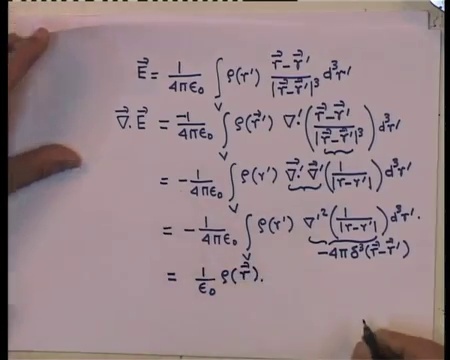 E⃗ = 1/4πε₀ ∫ ρ(r') (r⃗-r⃗')/|r⃗-r⃗'|³ d³r'
∇⃗.E⃗ = -1/4πε₀ ∫ᵥ ρ(r⃗') ∇'.((r⃗-r⃗')/|r⃗-r⃗'|³) d³r'
= -1/4πε₀ ∫ᵥ ρ(r') ∇⃗'.∇⃗'(1/|r-r'|) d³r'
= -1/4πε₀ ∫ᵥ ρ(r') ∇'²(1/|r-r'|) d³r'.
-4πδ³(r⃗-r⃗')
= 1/ε₀ ρ(r⃗).